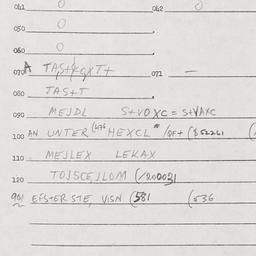 041 0 042 0
050 0
060 0
070 A 071 —
080 TAS+T
090 MEJDL S+VOXC = S+VAXC
100 AN UNTER HEXCL
110 MEJLEX LEKAX
120 TOJSCEJLOM (/200031
901 EFSTER STE, VISN (581 (536